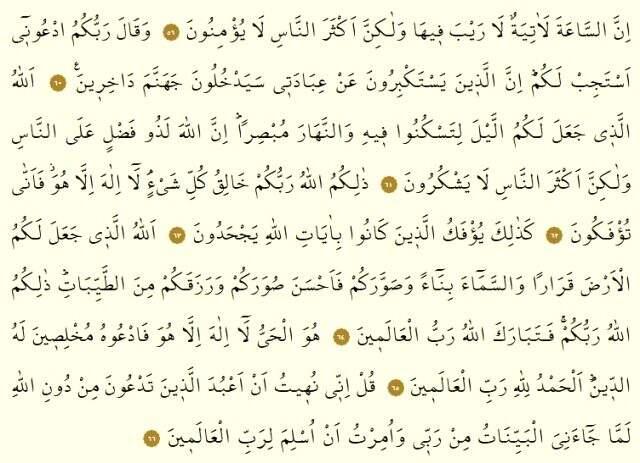 اِنَّ السَّاعَةَ لَاٰتِيَةٌ لَا رَيْبَ ف۪يهَا وَلٰكِنَّ اَكْثَرَ النَّاسِ لَا يُؤْمِنُونَ ﴿٥٩﴾ وَقَالَ رَبُّكُمُ ادْعُون۪ٓي
اَسْتَجِبْ لَكُمْۜ اِنَّ الَّذ۪ينَ يَسْتَكْبِرُونَ عَنْ عِبَادَت۪ي سَيَدْخُلُونَ جَهَنَّمَ دَاخِر۪ينَ۟ ﴿٦٠﴾ اَللّٰهُ
الَّذ۪ي جَعَلَ لَكُمُ الَّيْلَ لِتَسْكُنُوا ف۪يهِ وَالنَّهَارَ مُبْصِرًاۜ اِنَّ اللّٰهَ لَذُو فَضْلٍ عَلَى النَّاسِ
وَلٰكِنَّ اَكْثَرَ النَّاسِ لَا يَشْكُرُونَ ﴿٦١﴾ ذٰلِكُمُ اللّٰهُ رَبُّكُمْ خَالِقُ كُلِّ شَيْءٍۢ لَٓا اِلٰهَ اِلَّا هُوَۘ فَاَنّٰى
تُؤْفَكُونَ ﴿٦٢﴾ كَذٰلِكَ يُؤْفَكُ الَّذ۪ينَ كَانُوا بِاٰيَاتِ اللّٰهِ يَجْحَدُونَ ﴿٦٣﴾ اَللّٰهُ الَّذ۪ي جَعَلَ لَكُمُ
الْاَرْضَ قَرَارًا وَالسَّمَٓاءَ بِنَٓاءً وَصَوَّرَكُمْ فَاَحْسَنَ صُوَرَكُمْ وَرَزَقَكُمْ مِنَ الطَّيِّبَاتِۜ ذٰلِكُمُ
اللّٰهُ رَبُّكُمْۚ فَتَبَارَكَ اللّٰهُ رَبُّ الْعَالَم۪ينَ ﴿٦٤﴾ هُوَ الْحَيُّ لَٓا اِلٰهَ اِلَّا هُوَ فَادْعُوهُ مُخْلِص۪ينَ لَهُ
الدّ۪ينَۜ اَلْحَمْدُ لِلّٰهِ رَبِّ الْعَالَم۪ينَ ﴿٦٥﴾ قُلْ اِنّ۪ي نُه۪يتُ اَنْ اَعْبُدَ الَّذ۪ينَ تَدْعُونَ مِنْ دُونِ اللّٰهِ
لَمَّا جَٓاءَنِيَ الْبَيِّنَاتُ مِنْ رَبّ۪ي وَاُمِرْتُ اَنْ اُسْلِمَ لِرَبِّ الْعَالَم۪ينَ ﴿٦٦﴾